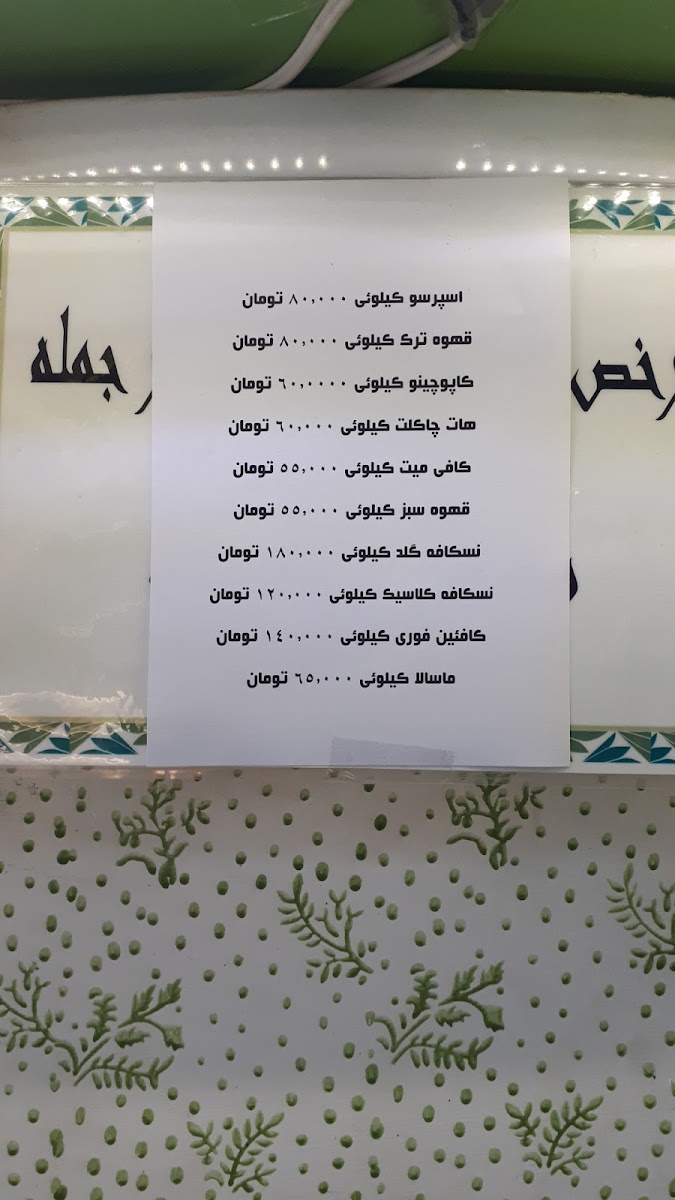 اسپرسو کیلوئی ۸۰,۰۰۰ تومان
قهوه ترک کیلوئی ۸۰,۰۰۰ تومان
کاپوچینو کیلوئی ۶۰,۰۰۰۰ تومان
هات چاکلت کیلوئی ۶۰,۰۰۰ تومان
کافی میت کیلوئی ۵۵,۰۰۰ تومان
قهوه سبز کیلوئی ۵۵,۰۰۰ تومان
نسکافه گلد کیلوئی ۱۸۰,۰۰۰ تومان
نسکافه کلاسیک کیلوئی ۱۲۰,۰۰۰ تومان
کافئین فوری کیلوئی ۱۴۰,۰۰۰ تومان
ماسالا کیلوئی ۶۵,۰۰۰ تومان
جمله